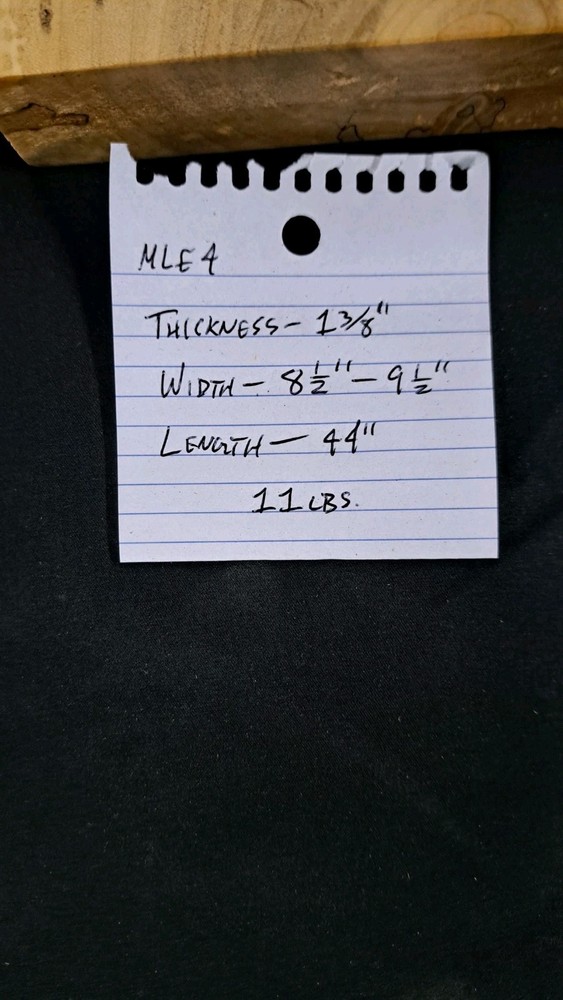 MLE 4
THICKNESS - 1 3/8"
WIDTH - 8 1/2" - 9 1/2"
LENGTH - 44"
11 LBS.